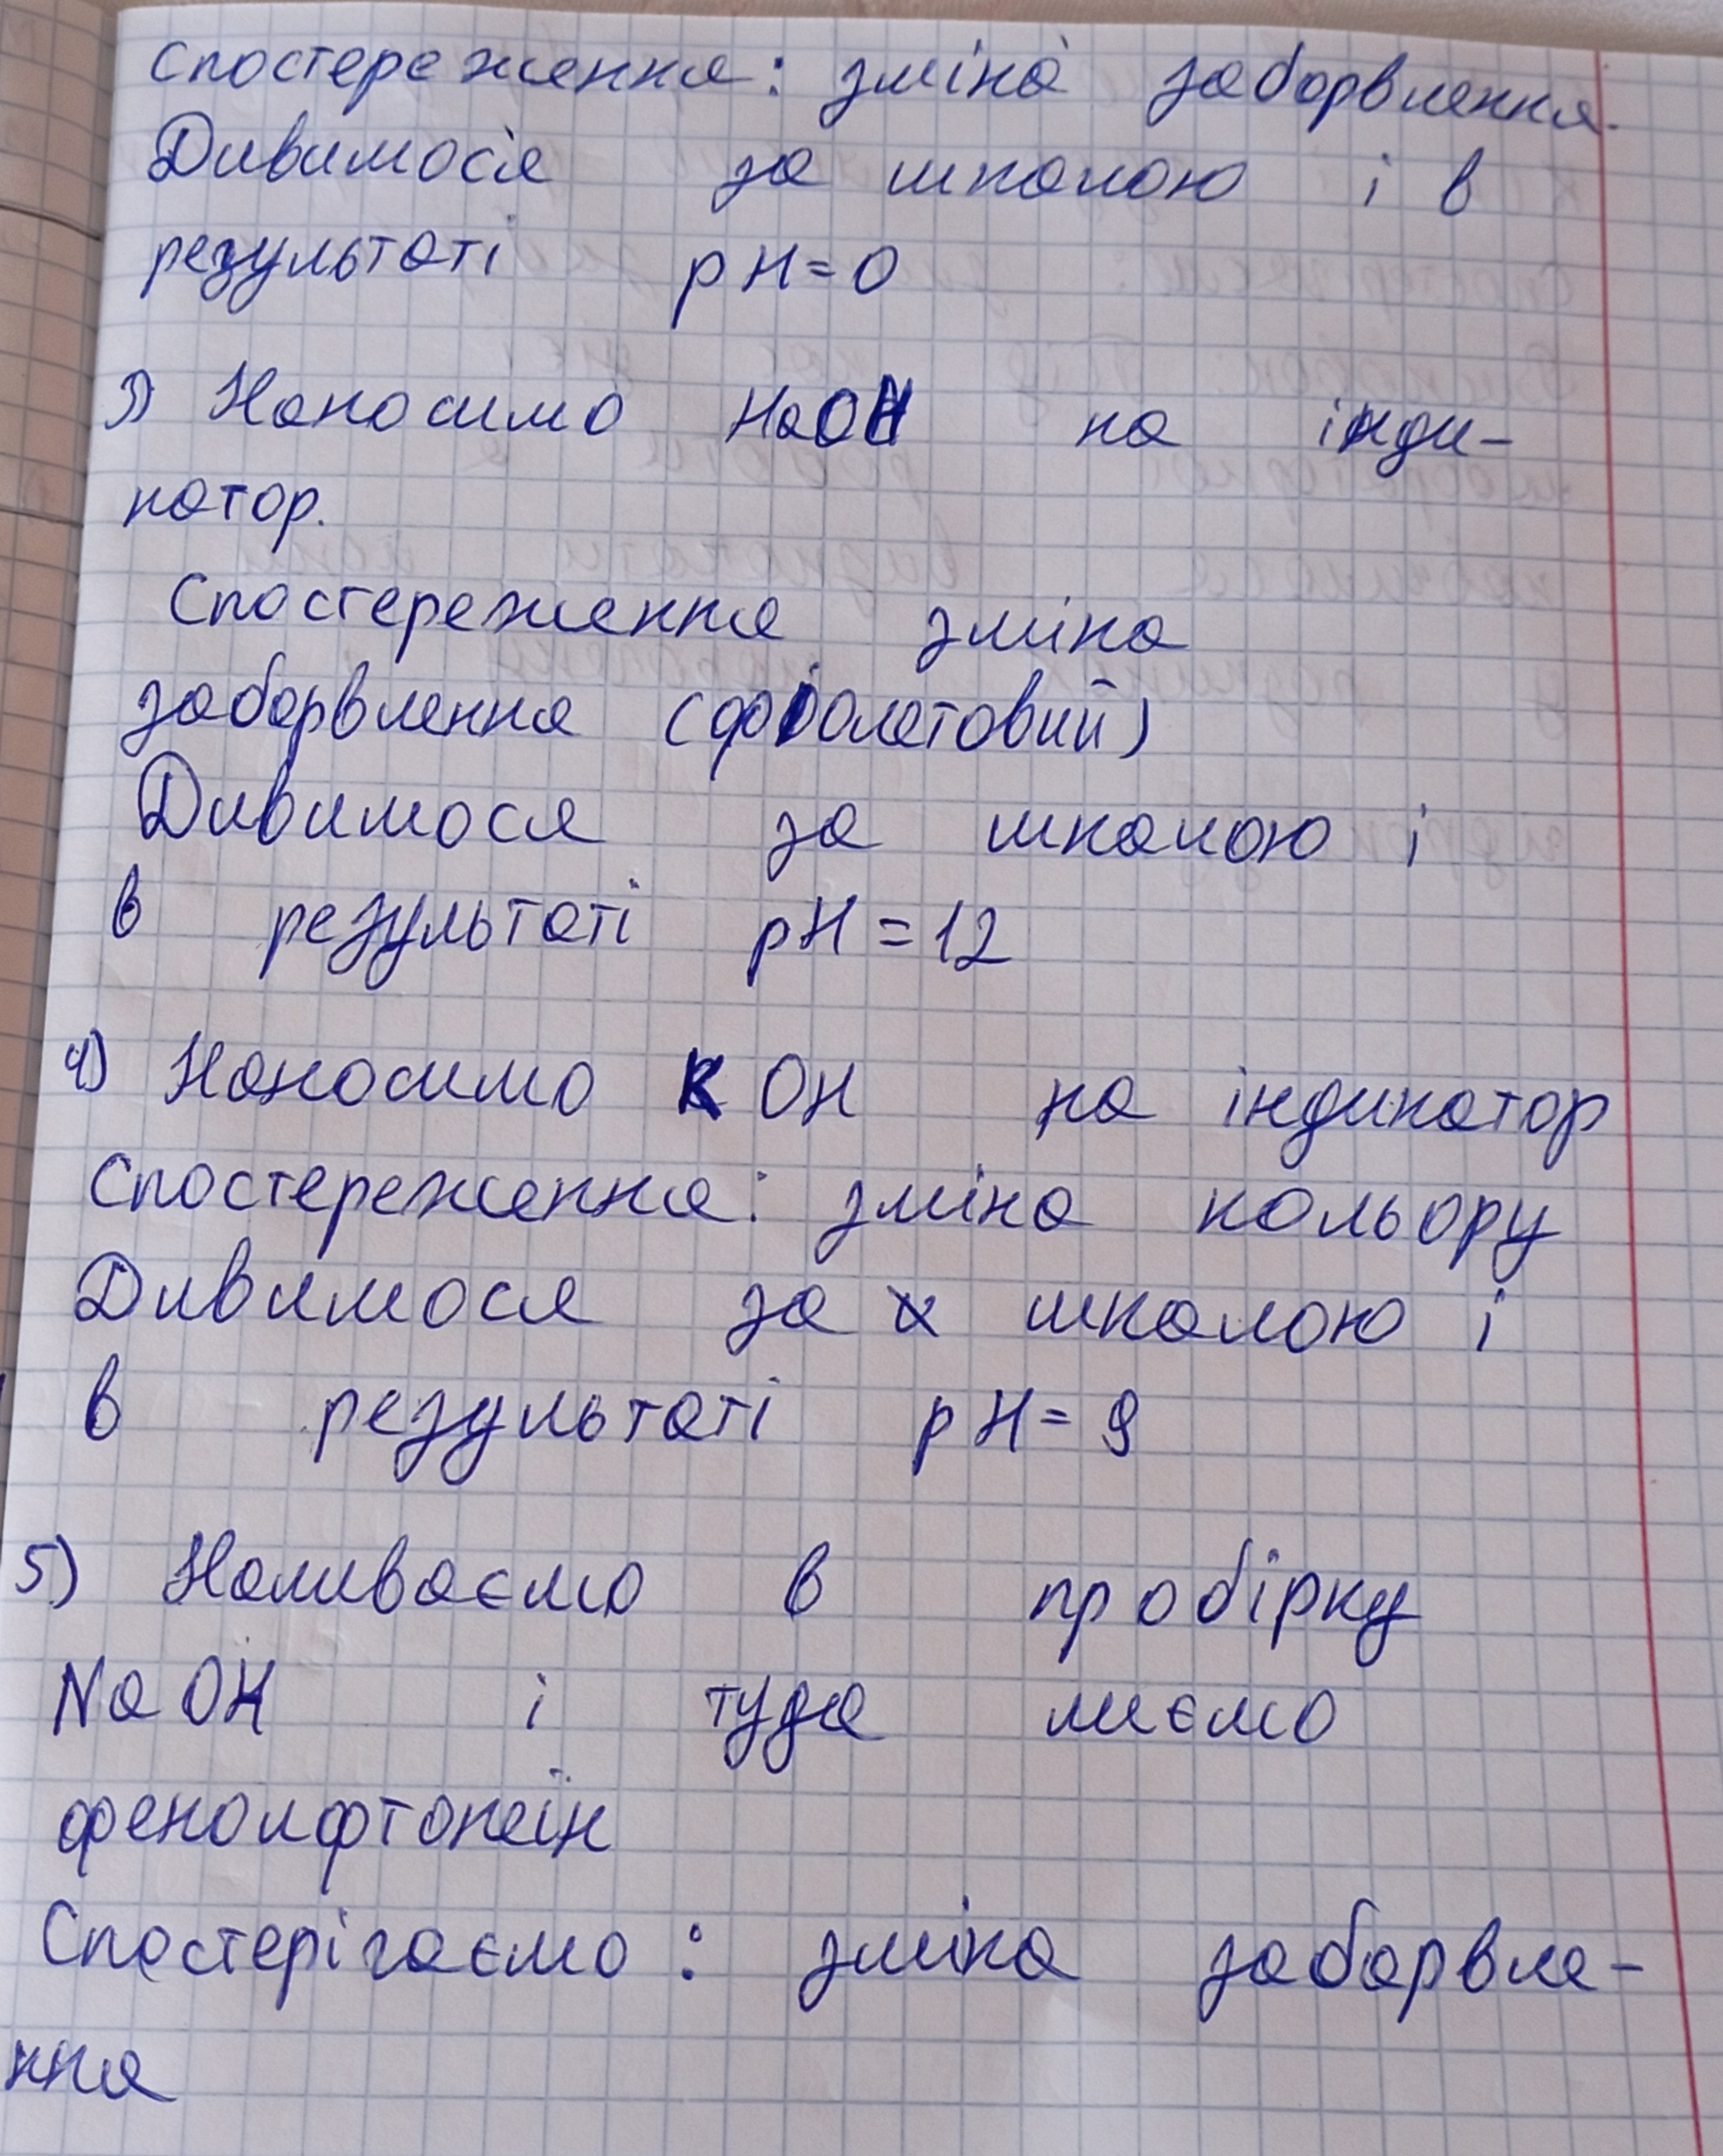 Спостереження: зміна забарвлення.
Дивимося за шкалою і в
результаті pH=0
3) Наносимо NaOH на інди-
катор.
Спостереження зміна
забарвлення (фіолетовий)
Дивимося за шкалою і
в результаті pH=12
4) Наносимо KOH на індикатор
Спостереження: зміна кольору
Дивимося за шкалою і
в результаті pH=9
5) Наливаємо в пробірку
NaOH і туда лиємо
фенолфтолеїн
Спостерігаємо: зміна забарвле-
ння